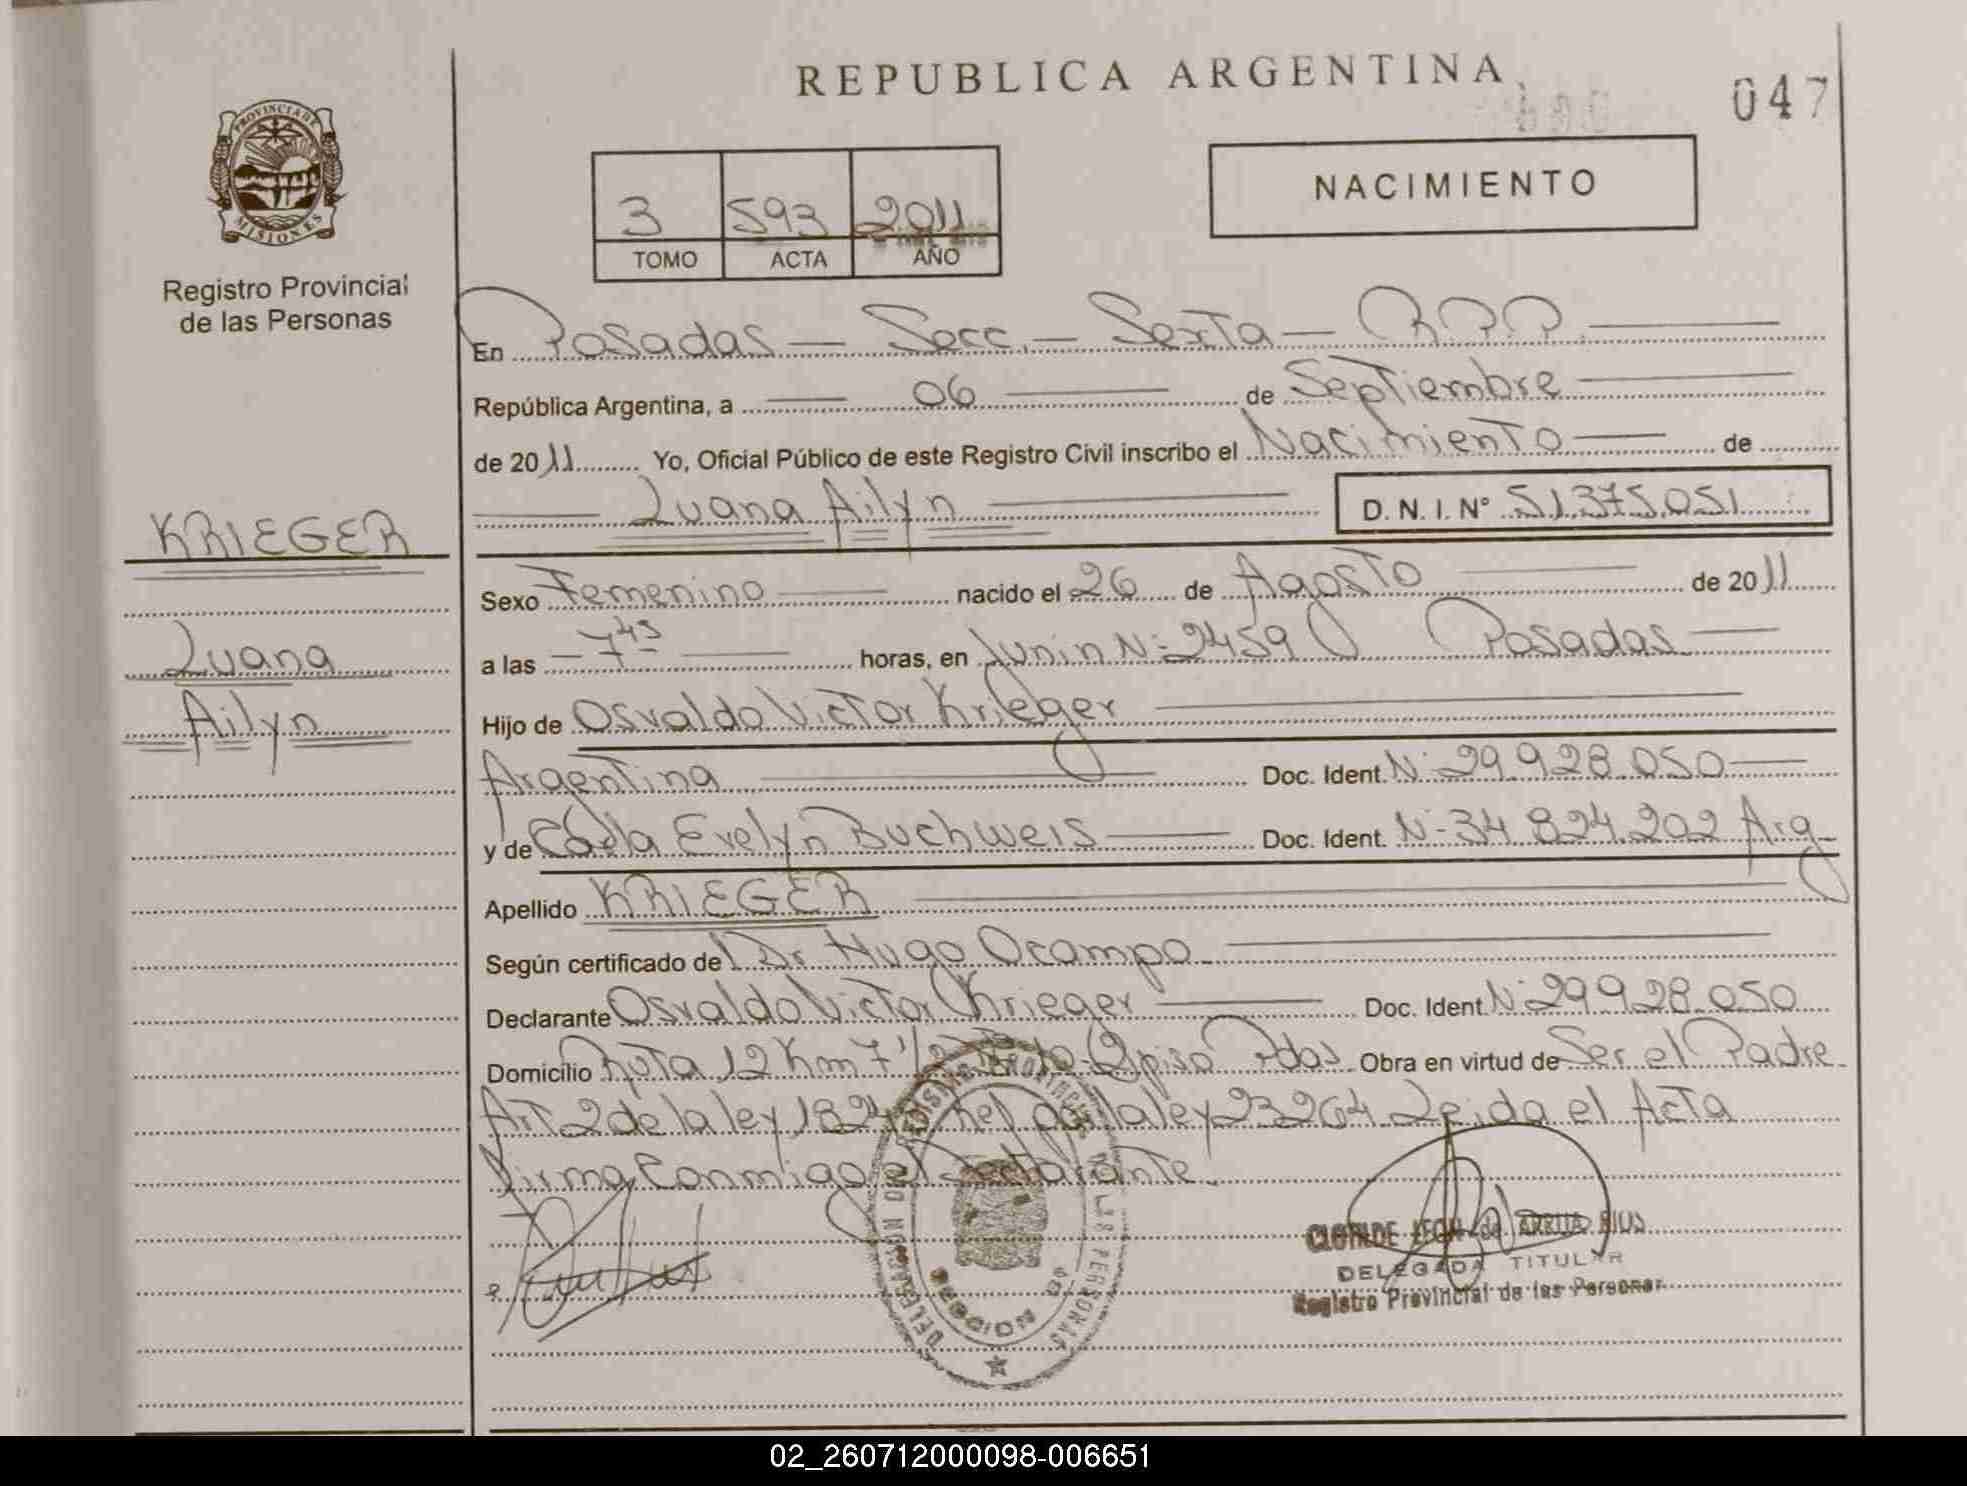 REPUBLICA ARGENTINA
047
PROVINCIA DE
MISIONES
Registro Provincial
de las Personas
3 593 2011
TOMO ACTA AÑO
NACIMIENTO
En Posadas — Secc. — Sexta — R.P.P.
República Argentina, a — 06 — de Septiembre
de 2011 Yo, Oficial Público de este Registro Civil inscribo el Nacimiento — de
Luana Ailyn D. N. I. Nº 51.375.051
KRIEGER
Luana
Ailyn
Sexo Femenino nacido el 26 de Agosto de 2011
a las - 7 45 - horas, en Junin Nº 2459 Posadas
Hijo de Osvaldo Victor Krieger
Argentina Doc. Ident. Nº 29.928.050
y de Evelyn Buchweis Doc. Ident. Nº 34.824.202 Arg
Apellido KRIEGER
Según certificado del Dr Hugo Ocampo
Declarante Osvaldo Victor Krieger Doc. Ident Nº 29.928.050
Domicilio Ruta 12 Km 7 1/2 piso Pdas Obra en virtud de Ser el Padre
Art 2 de la ley la ley 23264 Leida el Acta
Firma Conmigo el declarante.
CLOTILDE LEON de RIOS
DELEGADA TITULAR
Registro Provincial de las Personas
SECCION
02_260712000098-006651